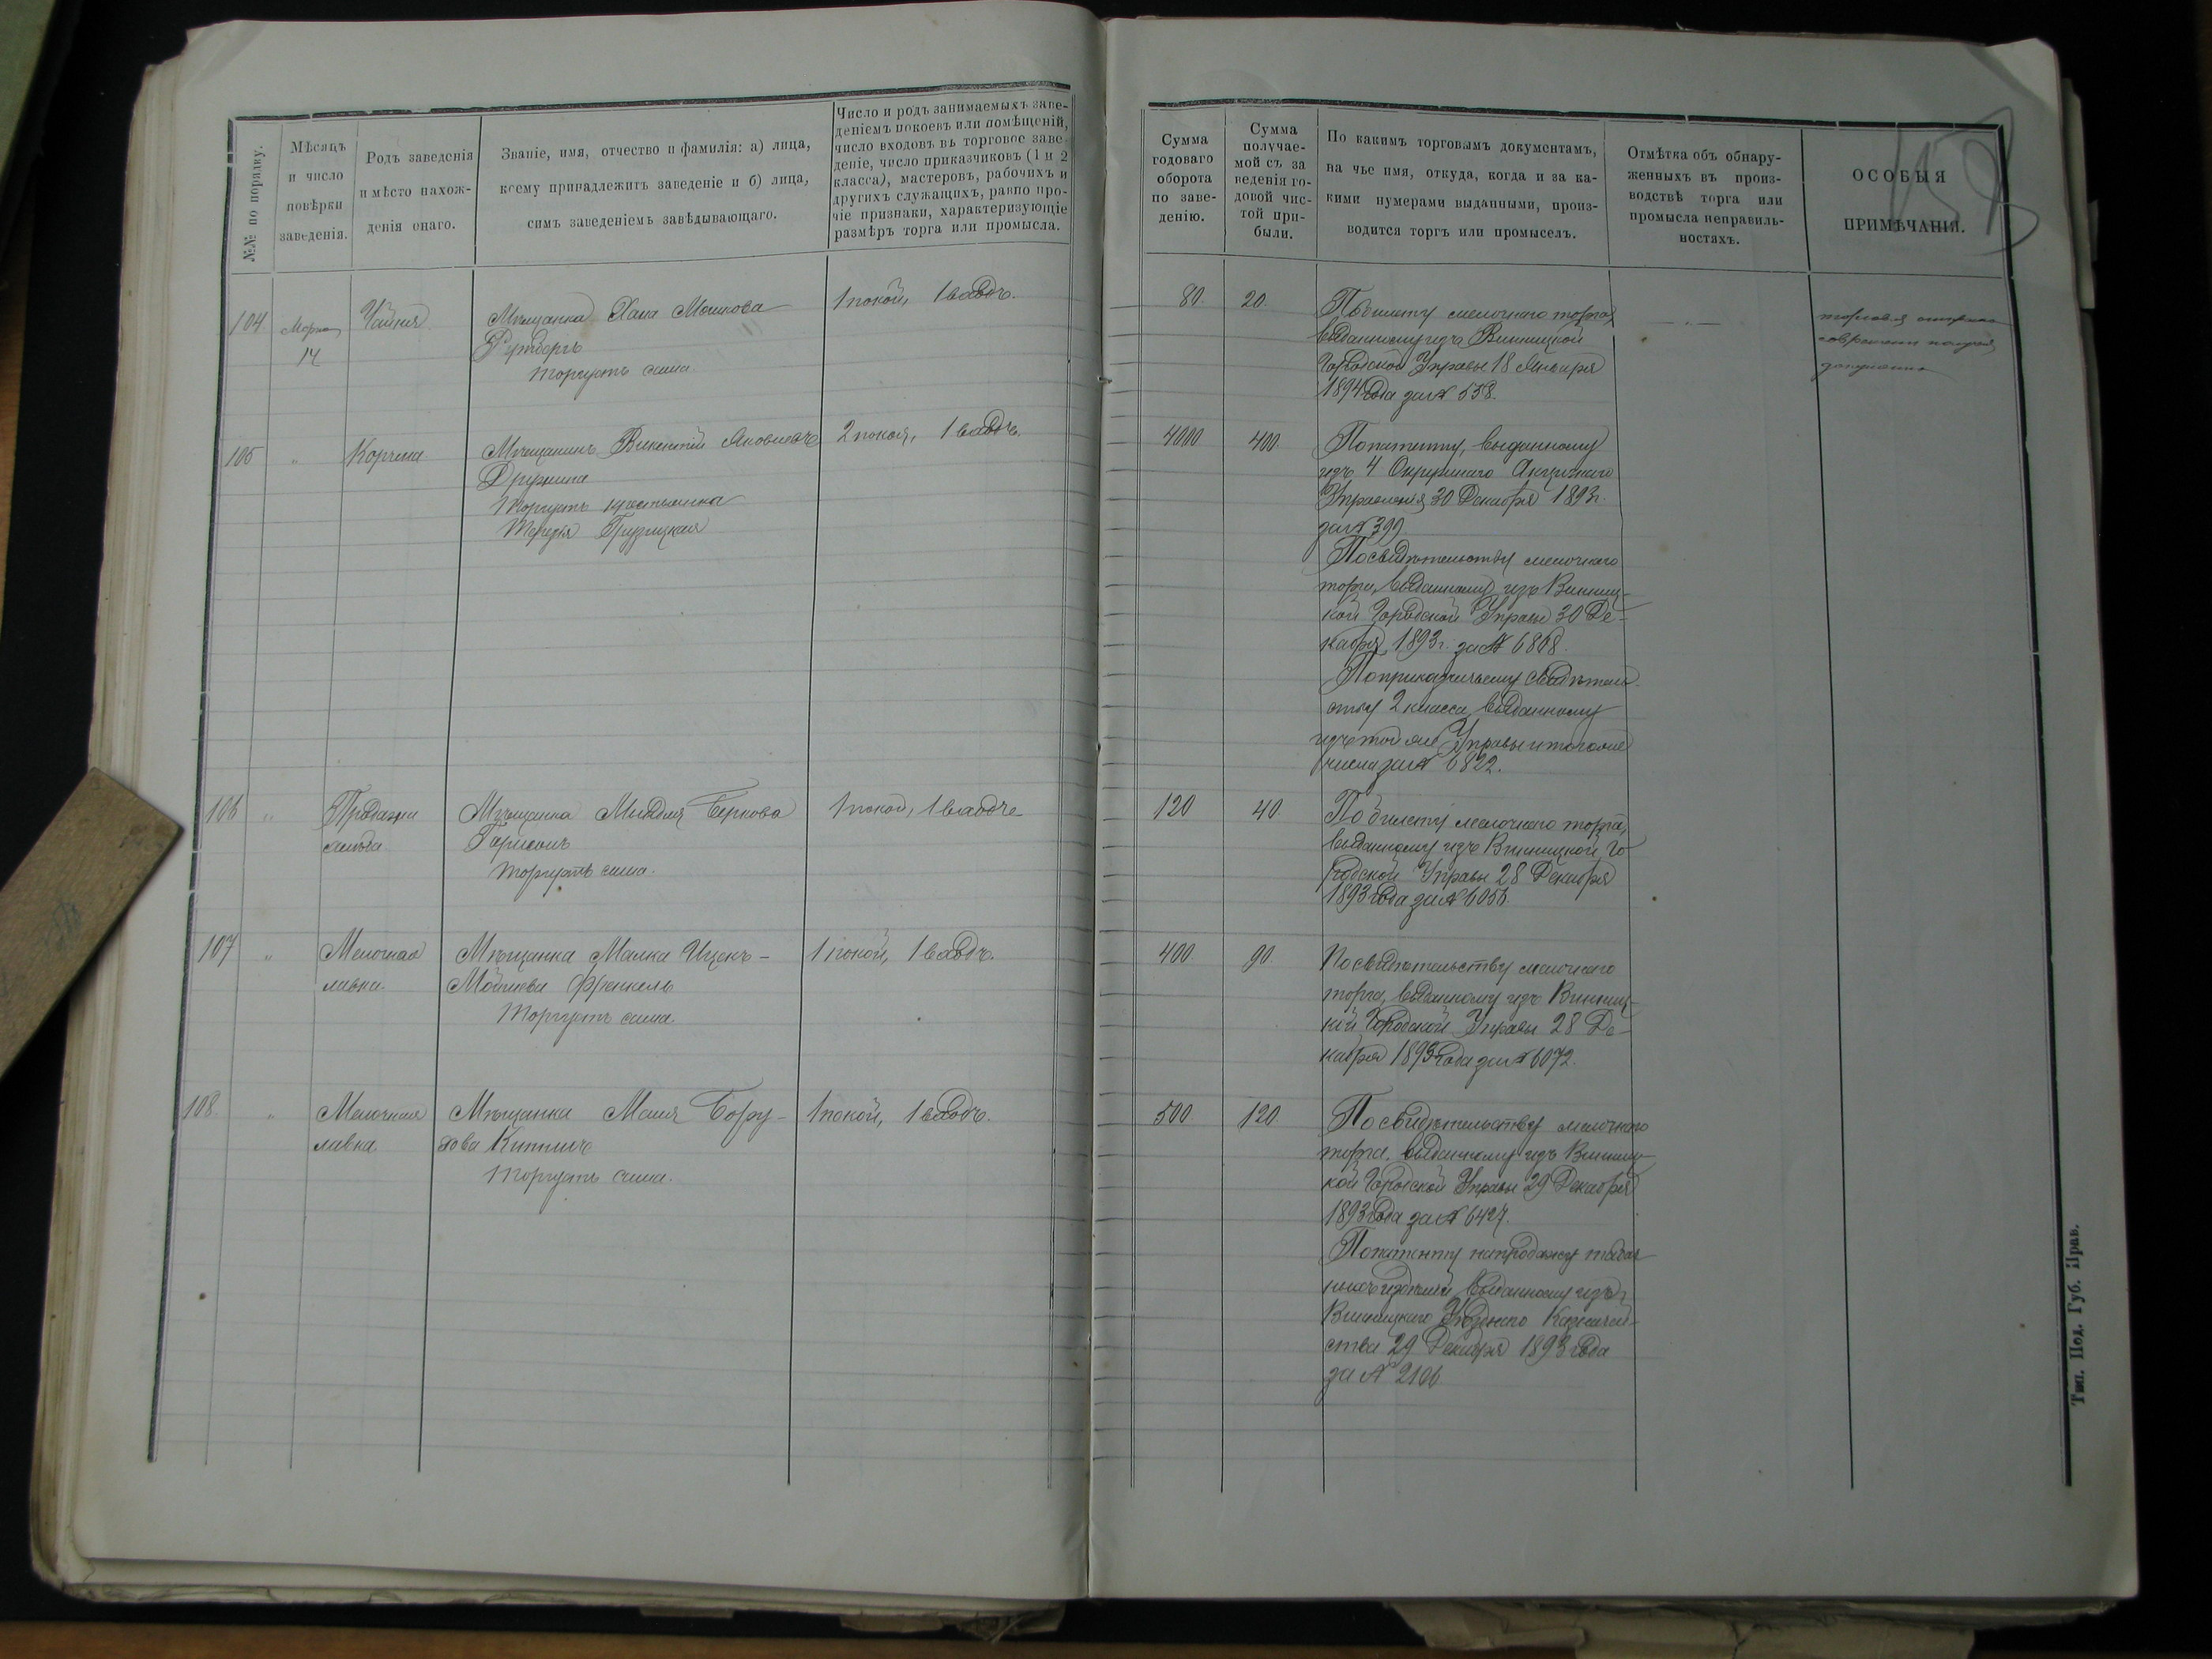 №№ по порядку.
Мѣсяцъ
и число
повѣрки
заведенія.
Родъ заведенія
и мѣсто нахож-
денія онаго.
Званіе, имя, отчество и фамилія: а) лица,
коему принадлежитъ заведеніе и б) лица,
симъ заведеніемъ завѣдывающаго.
Число и родъ занимаемыхъ заве-
деніемъ покоевъ или помѣщеній,
число входовъ въ торговое заве-
деніе, число приказчиковъ (1 и 2
класса), мастеровъ, рабочихъ и
другихъ служащихъ, равно про-
чіе признаки, характеризующіе
размѣръ торга или промысла.
Сумма
годоваго
оборота
по заве-
денію.
Сумма
получае-
мой съ за
веденія го-
довой чис-
той при-
были.
По какимъ торговымъ документамъ,
на чье имя, откуда, когда и за ка-
кими нумерами выданными, произ-
водится торгъ или промыселъ.
Отмѣтка объ обнару-
женныхъ въ произ-
водствѣ торга или
промысла неправиль-
ностяхъ.
ОСОБЫЯ
ПРИМѢЧАНІЯ.
104
Марта
14
Чайная
Мѣщанка Хана Мошкова
торгуетъ сама
1 покой, 1 входъ.
80.
20.
По билету мелочнаго торга,
выданному изъ Винницкой
Городской Управы 18 Января
1894 года за № 538.
105
"
Корчма
Мѣщанинъ Викентій Яковлевъ
Дружина
Торгуетъ крестьянка
2 покоя, 1 входъ.
4000
400.
По патенту, выданному
изъ 4 Окружнаго Акцизнаго
Управленія 30 Декабря 1893 г.
за № 399
По свидѣтельству мелочнаго
торга, выданному изъ Винниц-
кой Городской Управы 30 Де-
кабря 1893 г. за № 6808.
По приказчичьему свидѣтель-
ству 2 класса, выданному
изъ той же Управы и того же
числа за № 6822.
106
"
Продажа
Мѣщанка Беркова
торгуетъ сама.
1 покой, 1 входъ
120
40.
По билету мелочнаго торга,
выданному изъ Винницкой Го-
родской Управы 28 Декабря
1893 года за № 6056.
107
"
Мелочная
лавка.
Мѣщанка Малка Ицекъ-
Мошкова Френкель
Торгуетъ сама.
1 покой, 1 входъ.
400.
90.
По свидѣтельству мелочнаго
торга, выданному изъ Винниц-
кой Городской Управы 28 Де-
кабря 1893 года за № 6072.
108.
"
Мелочная
лавка
Мѣщанка Маня Бору-
хова
Торгуетъ сама.
1 покой, 1 входъ.
500.
120.
По свидѣтельству мелочнаго
торга, выданному изъ Винниц-
кой Городской Управы 29 Декабря
1893 года за № 6427.
По патенту на продажу табач-
ныхъ издѣлій выданному изъ
Винницкаго Уѣзднаго Казначей-
ства 29 Декабря 1893 года
за № 2106
Тип. Под. Губ. Прав.